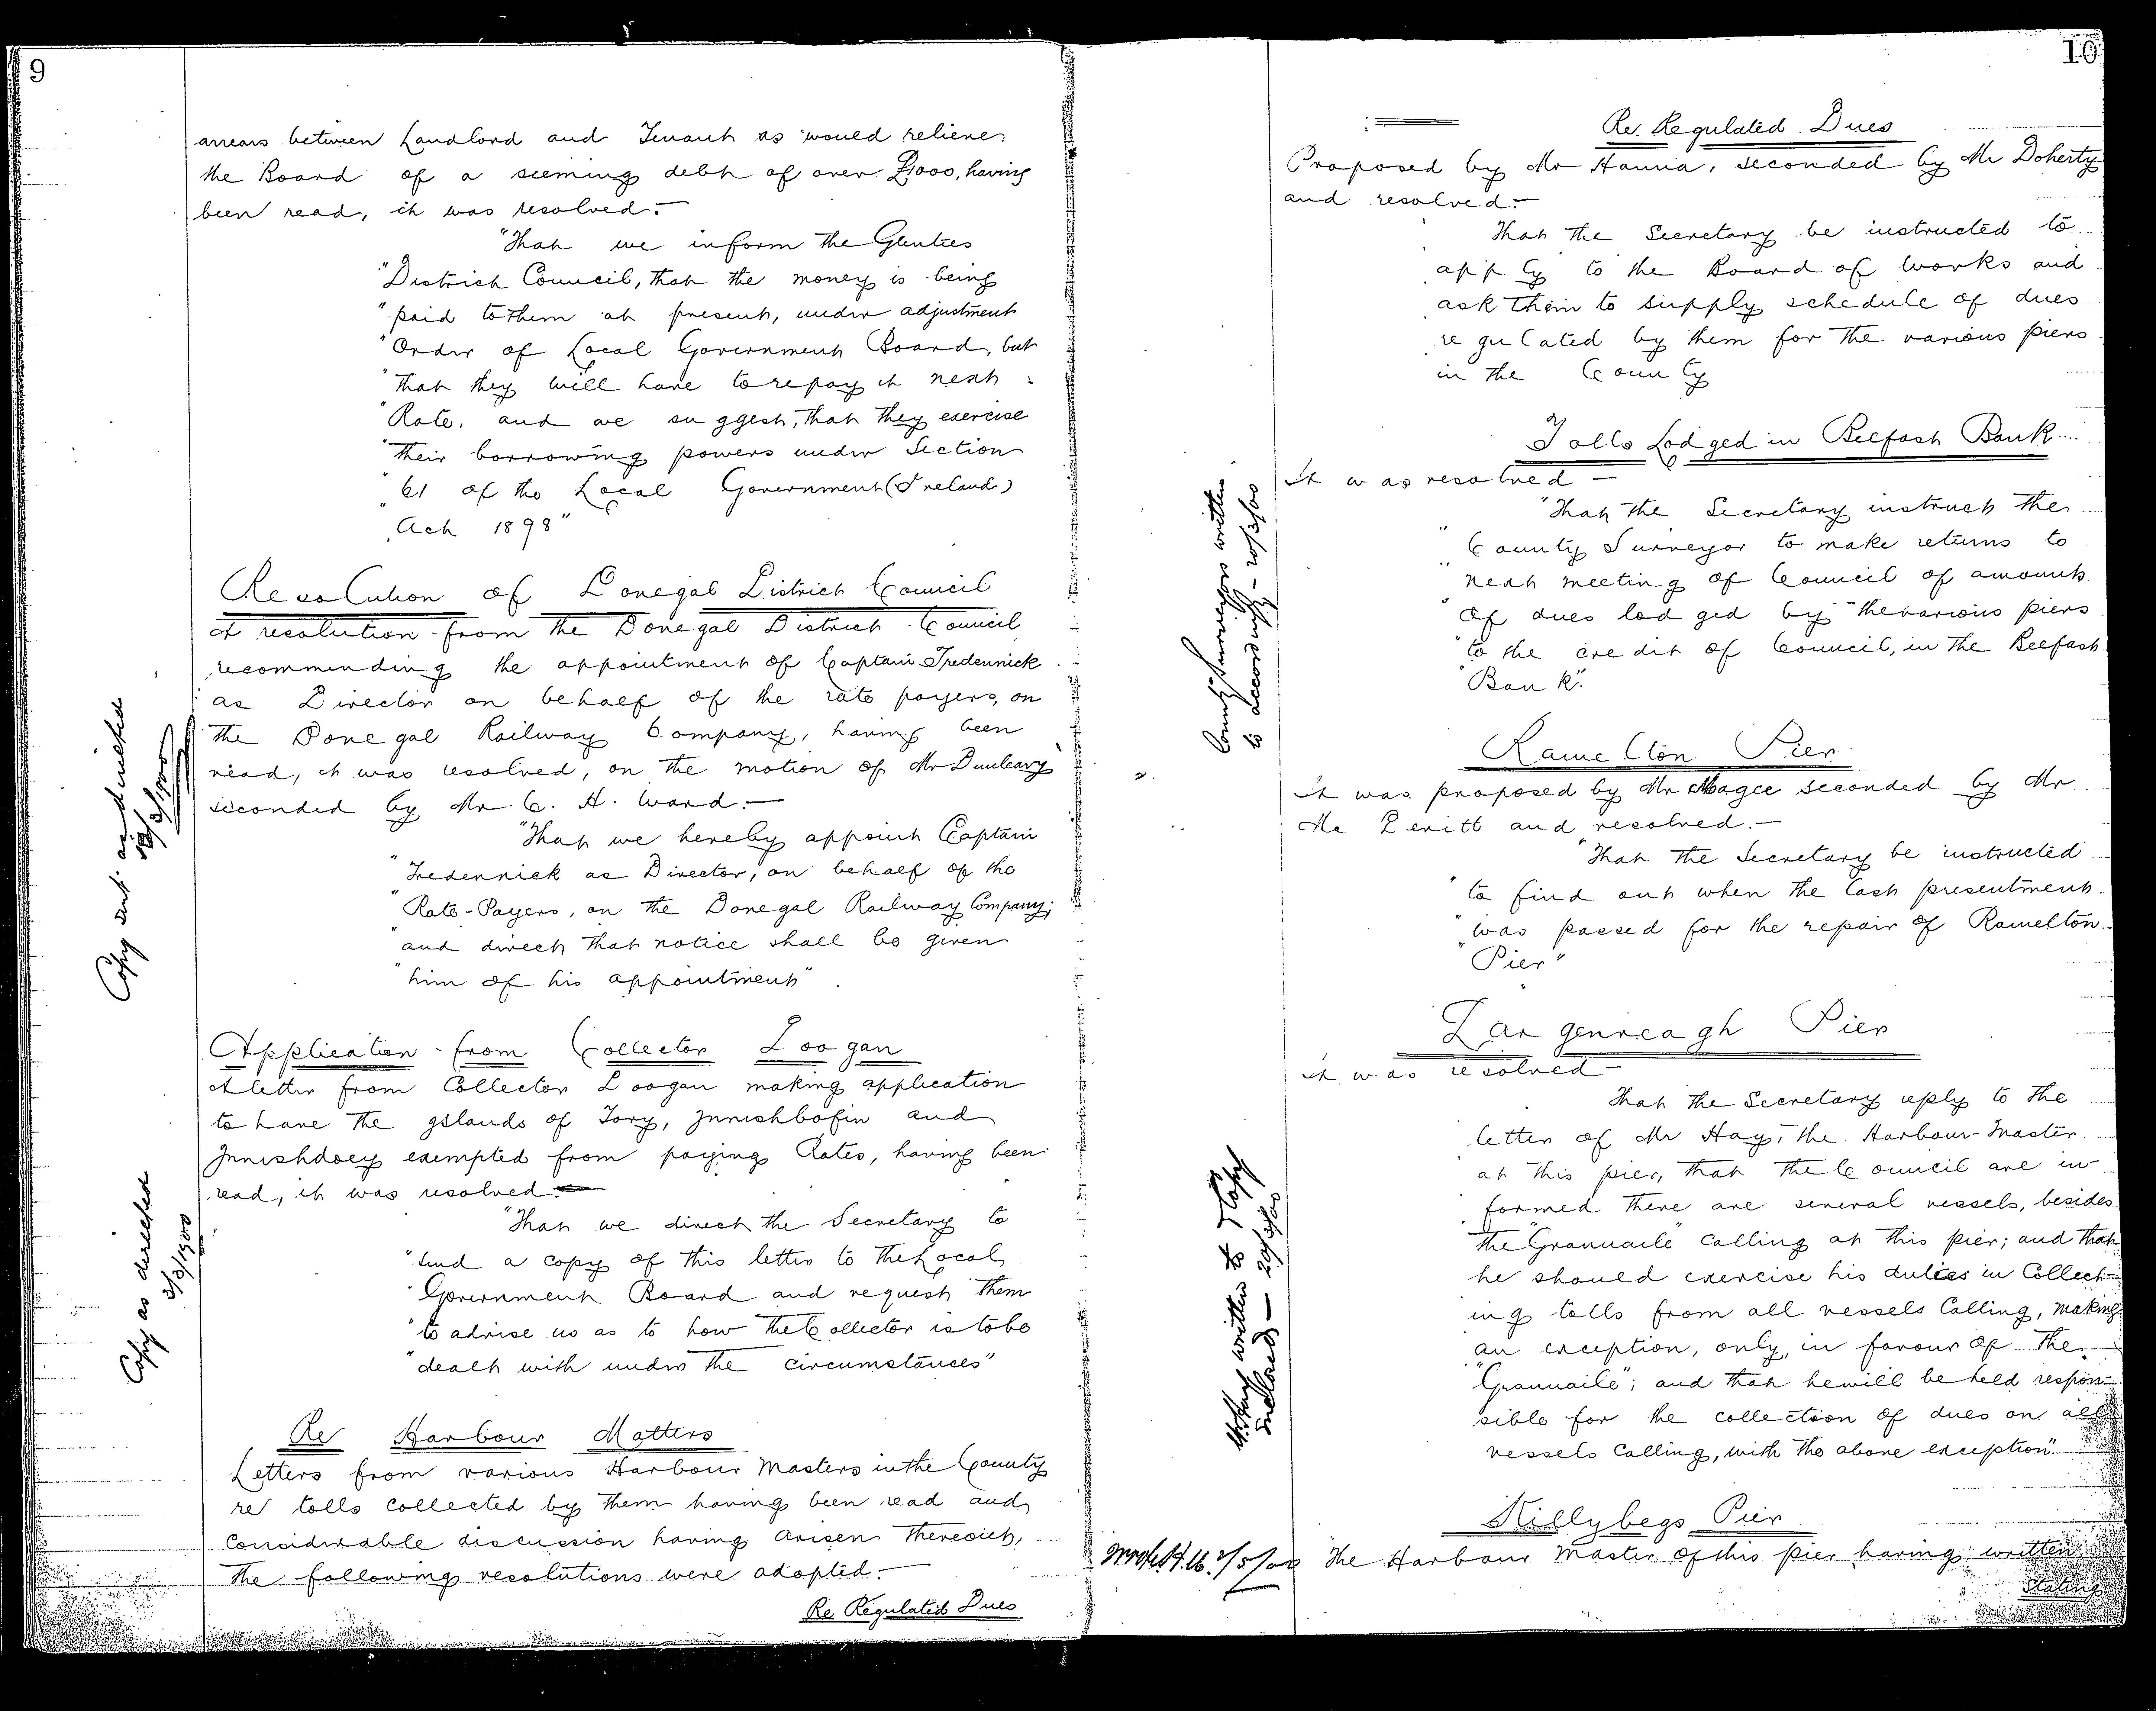 9
arrears between Landlord and Tenant as would relieve
the Board of a seeming debt of over £1000, having
been read, it was resolved:-
"That we inform the Glenties
"District Council, that the money is being
"paid to them at present, under adjustment
"Order of Local Government Board, but
"that they will have to repay it next
"Rate, and we suggest, that they exercise
"their borrowing powers under Section
"61 of the Local Government (Ireland)
"Act 1898"
Resolution of Donegal District Council
A resolution from the Donegal District Council
recommending the appointment of Captain Tredennick
as Director on behalf of the rate payers, on
the Donegal Railway Company, having been
read, it was resolved, on the motion of Mr Dunleavy
seconded by Mr C. A. Ward:-
"That we hereby appoint Captain
"Tredennick as Director, on behalf of the
"Rate-Payers, on the Donegal Railway Company;
"and direct that notice shall be given
"him of his appointment"
Copy sent as directed
/3/1900
Application from Collector Doogan
A letter from Collector Doogan making application
to have the Islands of Tory, Innishbofin and
Innishdoey exempted from paying Rates, having been
read, it was resolved:-
"That we direct the Secretary to
"send a copy of this letter to the Local
"Government Board and request them
"to advise us as to how the Collector is to be
"dealt with under the circumstances"
Copy as directed
3/3/1900
Re Harbour Matters
Letters from various Harbour Masters in the County
re tolls collected by them having been read and
considerable discussion having arisen thereout,
the following resolutions were adopted:-
Re Regulated Dues
10
Re Regulated Dues
Proposed by Mr Hanna, seconded by Mr Doherty
and resolved:-
That the Secretary be instructed to
apply to the Board of Works and
ask them to supply schedule of dues
regulated by them for the various piers
in the County
Tolls Lodged in Belfast Bank
It was resolved -
"That the Secretary instruct the
"County Surveyor to make returns to
"next meeting of Council of amount
"of dues lodged by the various piers
"to the credit of Council, in the Belfast
"Bank".
County Surveyors written
to accordingly - 20/3/00
Ramelton Pier
It was proposed by Mr Magee seconded by Mr
Mc Devitt and resolved:-
"That the Secretary be instructed
"to find out when the last presentment
"was passed for the repair of Ramelton
"Pier"
Largenreagh Pier
It was resolved -
That the Secretary reply to the
letter of Mr Hay, the Harbour-Master
at this pier, that the Council are in-
formed there are several vessels, besides
the "Granuaile" calling at this pier; and that
he should exercise his duties in Collect-
ing tolls from all vessels Calling, making
an exception, only, in favour of the
"Granuaile"; and that he will be held respon-
sible for the collection of dues on all
vessels Calling, with the above exception".
Mr Hay written to & Copy
Enclosed - 20/3/00
Killybegs Pier
Wrote H.M. 2/5/00 The Harbour Master of this pier having written
Stating